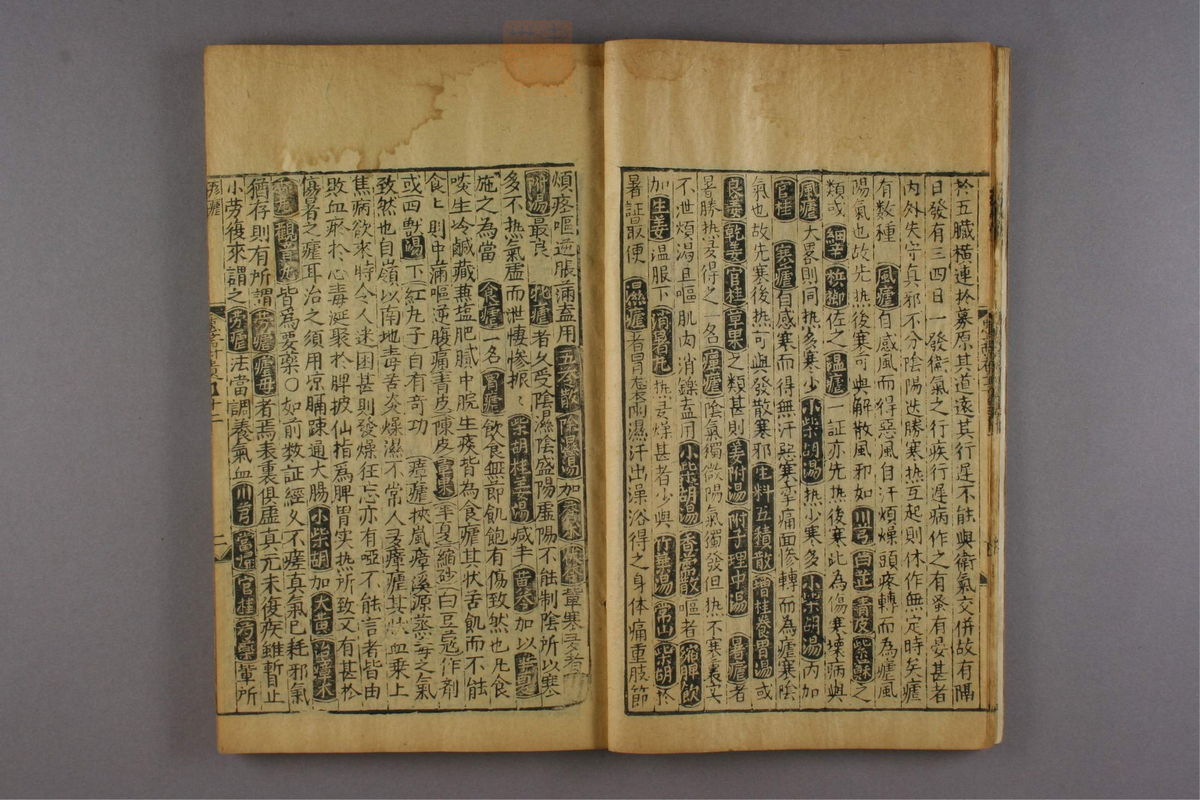 於五臟橫連於募原其道遠其行遲不能與衛氣交併故有隅
日發有三四日一發衛氣之行疾行遲病作之有蚤有晏甚者
內外失守真邪不分陰陽迭勝寒熱互起則休作無定時矣瘧
有数種 風瘧自感風而得惡風自汗煩燥頭疼轉而為瘧風
陽氣也故先热後寒可與解散風邪如川芎白芷青皮紫蘇之
類或細辛梹榔佐之温瘧一証亦先热後寒此為傷寒壞病與
風瘧大畧則同热多寒少小柴胡湯热少寒多小柴胡湯內加
官桂 寒瘧自感寒而得無汗惡寒挛痛面惨轉而為瘧寒陰
氣也故先寒後热可與發散寒邪生料五積散增桂養胃湯或
良姜乾姜官桂草果之類甚則姜附湯附子理中湯 暑瘧者
暑勝热多得之一名瘴瘧陰氣獨微陽氣獨發但热不寒裏实
不泄煩渴且嘔肌肉消鑠盍用小柴胡湯香薷散嘔者縮脾飲
加生姜温服下消暑丸热多燥甚者少與竹葉湯常山柴胡於
暑証最便 濕瘧者冒襲雨濕汗出澡浴得之身体痛重肢節
煩疼嘔逆脹滿盍用五苓散除濕湯加蒼朮茯苓輩寒多者
附湯最良 牝瘧者久受陰濕陰盛陽虛陽不能制陰所以寒
多不热氣虛而泄悽慘振〻柴胡桂姜湯減半黃芩加以半夏
施之為當 食瘧一名胃瘧飲食無節飢飽有傷致然也凡食
啖生冷鹹藏蕪塩肥膩中脘生痰皆為食瘧其状舌飢而不能
食〻則中滿嘔逆腹痛青皮陳皮草果半夏縮砂白豆蔻作剂
或四獸湯下紅丸子自有奇功 瘴瘧挾嵐瘴溪源蒸毒之氣
致然也自嶺以南地毒苦炎燥濕不常人多瘴瘧其状血乗上
焦病欲来時令人迷困甚則發燥狂忘亦有啞不能言者皆由
敗血瘀於心毒涎聚於脾披仙指為脾胃实热所致又有甚於
傷暑之瘧耳治之須用凉膈踈通大腸小柴胡加大黃治瘴木
觀音丸皆為要藥〇如前数証經久不瘥真氣已耗邪氣
猶存則有所謂勞瘧瘧母者焉表裏俱虛真元未復疾雖暫止
小劳復來謂之劳瘧法當調養氣血川芎當歸官桂芍藥輩所